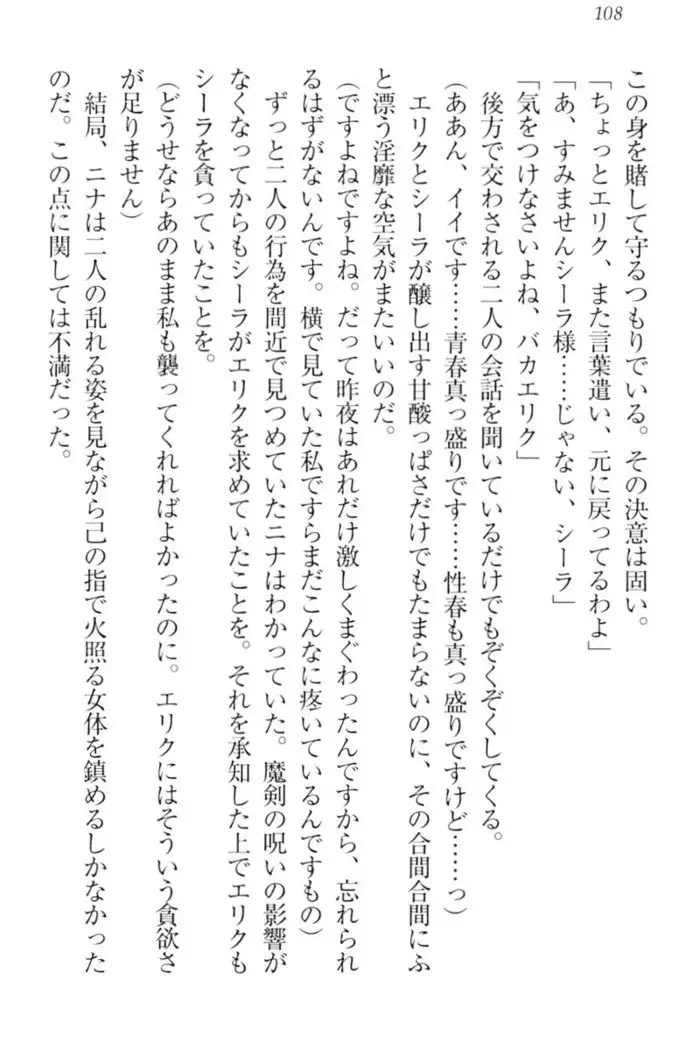 108
この身を賭して守るつもりでいる。その決意は固い。
「ちょっとエリク、また言葉遣い、元に戻ってるわよ」
「あ、すみませんシーラ様……じゃない、シーラ」
「気をつけなさいよね、バカエリク」
後方で交わされる二人の会話を聞いているだけでもぞくぞくしてくる。
(ああん、イイです……青春真っ盛りです……性春も真っ盛りですけど……っ)
エリクとシーラが醸し出す甘酸っぱさだけでもたまらないのに、その合間合間にふ
と漂う淫靡な空気がまたいいのだ。
(ですよねですよね。だって昨夜はあれだけ激しくまぐわったんですから、忘れられ
るはずがないんです。横で見ていた私ですらまだこんなに疼いているんですもの)
ずっと二人の行為を間近で見つめていたニナはわかっていた。魔剣の呪いの影響が
なくなってからもシーラがエリクを求めていたことを。それを承知した上でエリクも
シーラを貪っていたことを。
(どうせならあのまま私も襲ってくれればよかったのに。エリクにはそういう貪欲さ
が足りません)
結局、ニナは二人の乱れる姿を見ながら己の指で火照る女体を鎮めるしかなかった
のだ。この点に関しては不満だった。